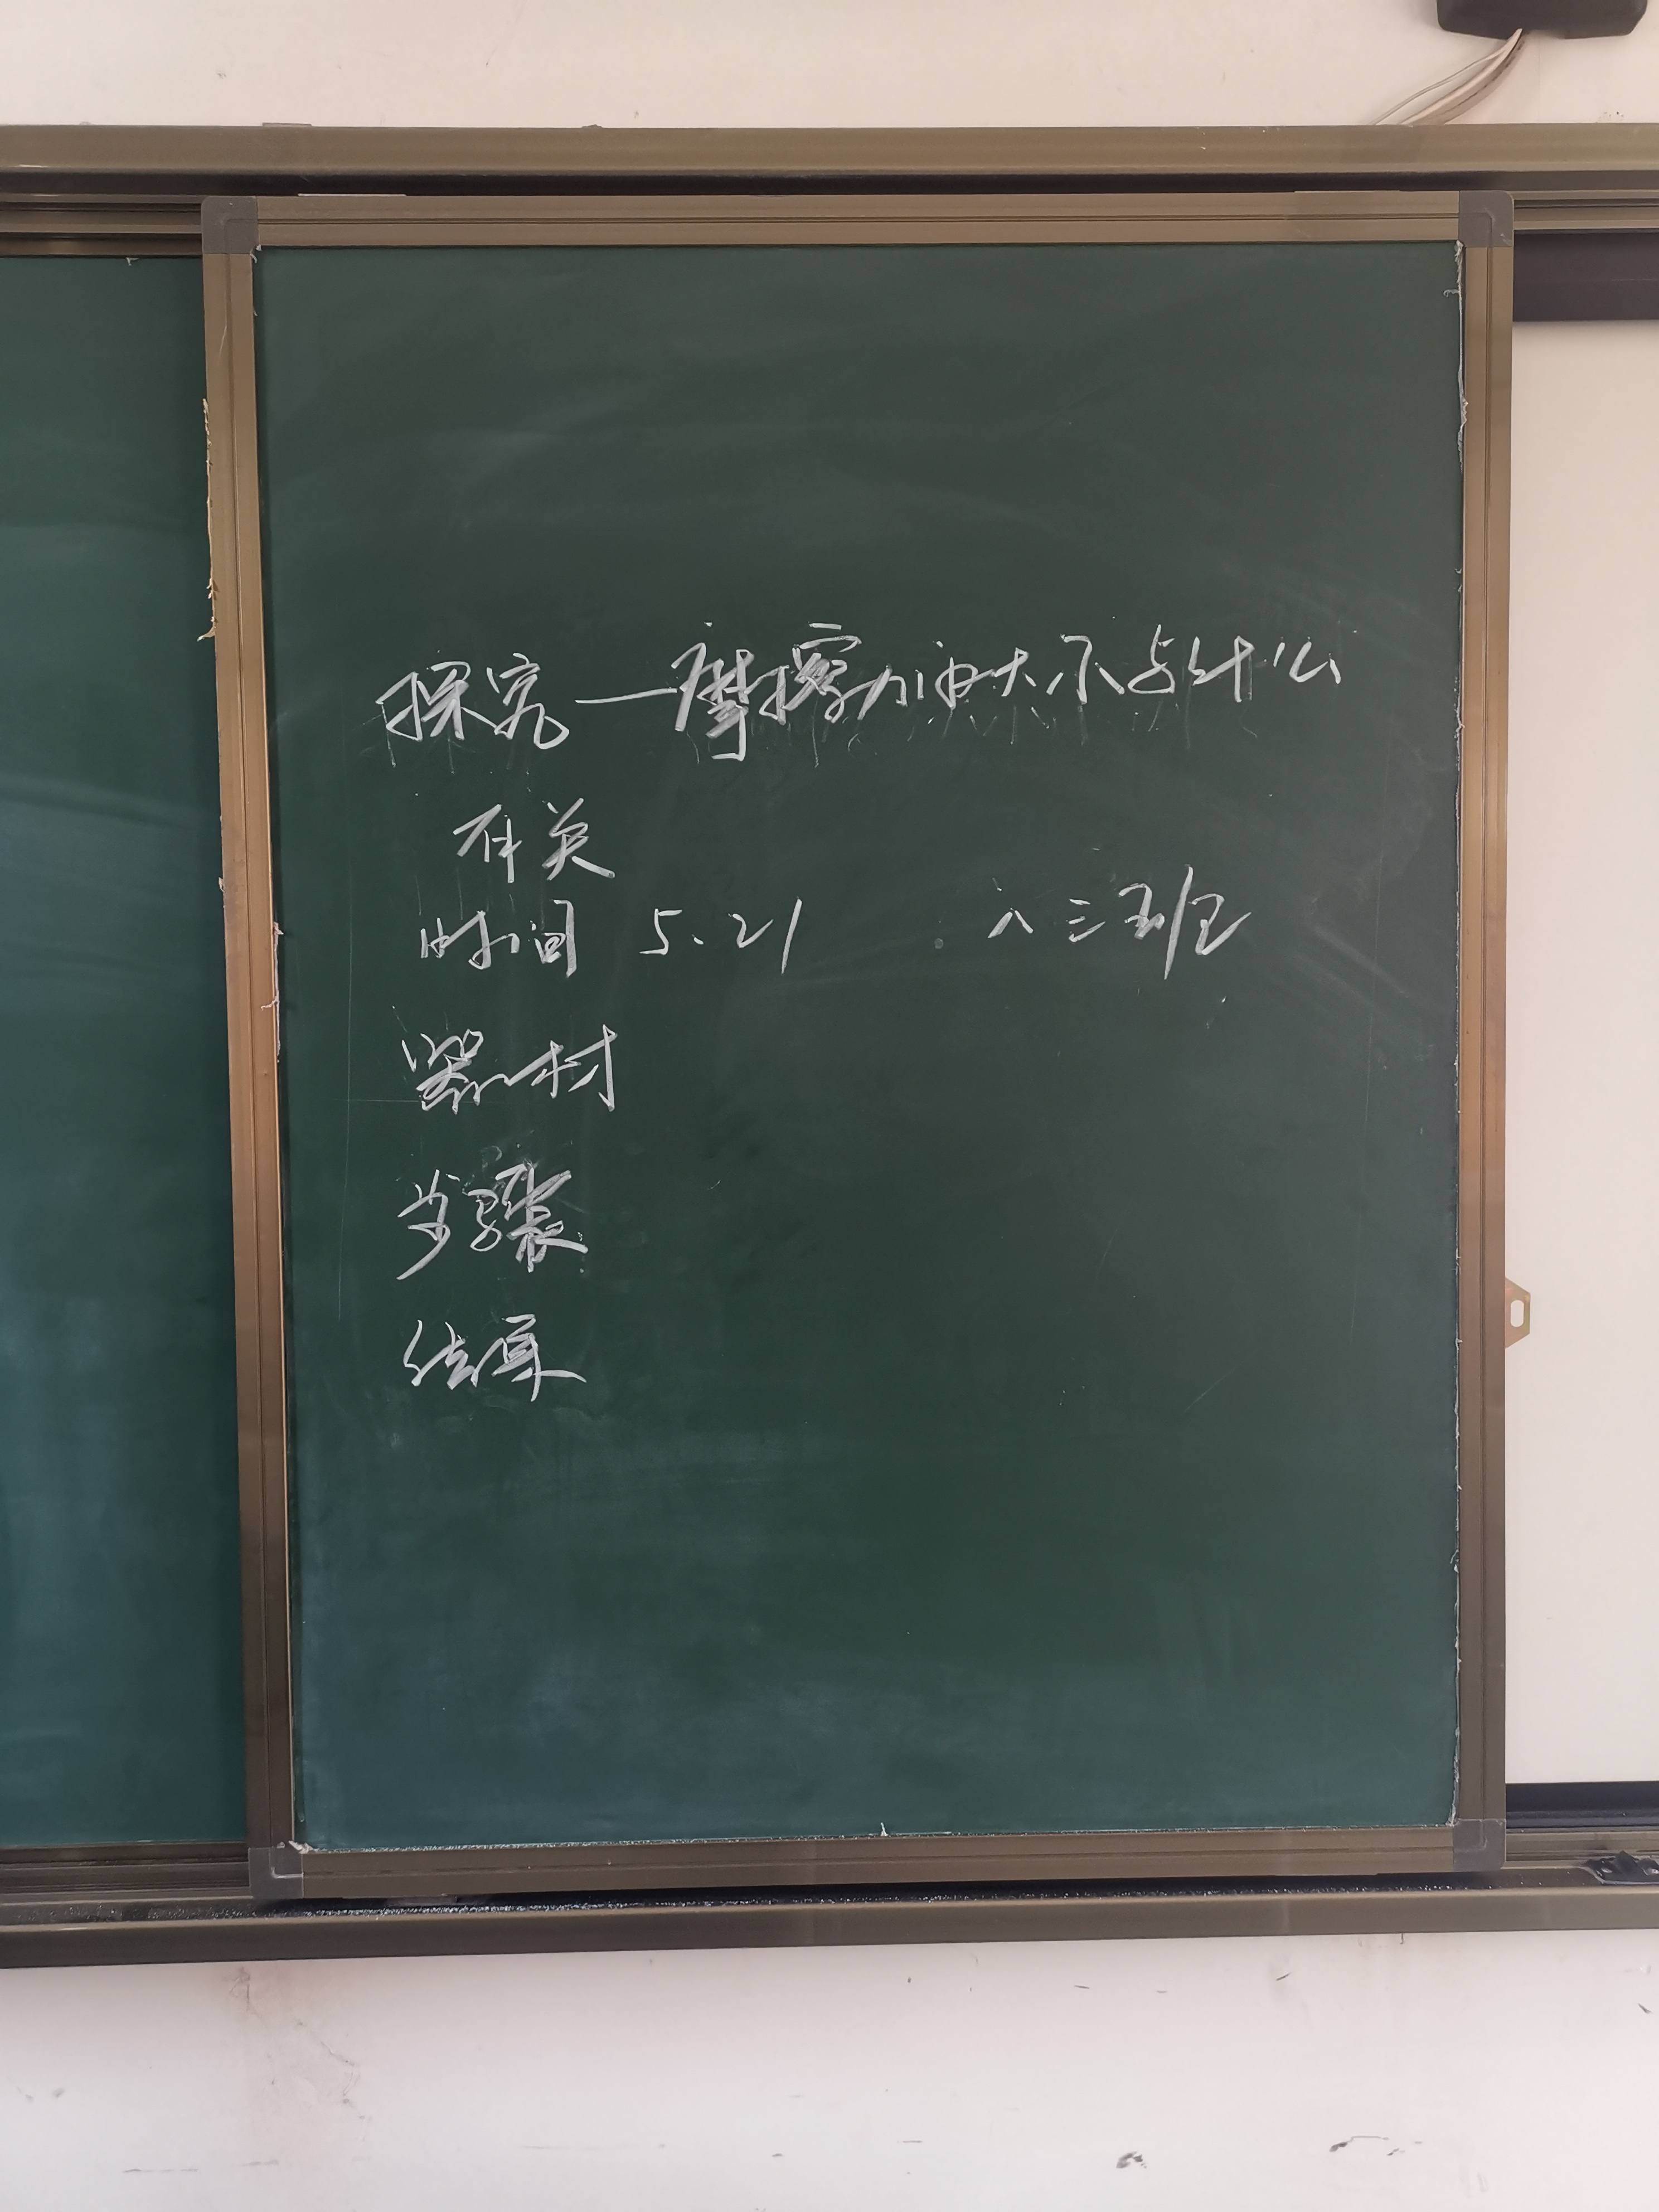 探究—摩擦力的大小与什么
有关
时间 5.21 八三班
器材
步骤
结果